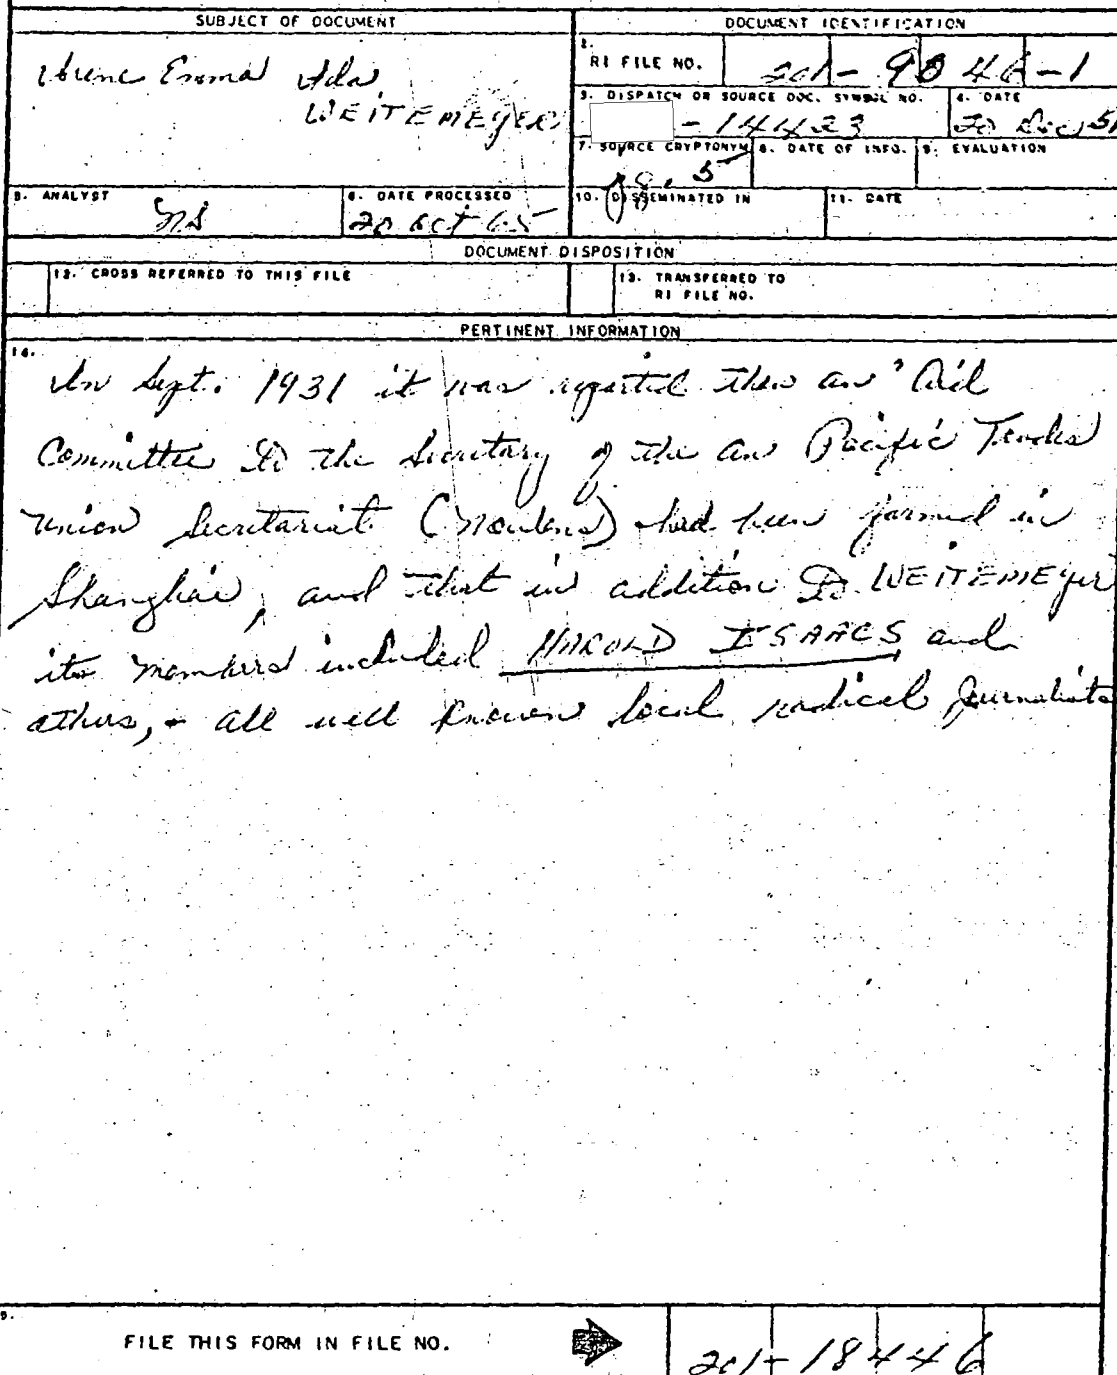 SUBJECT OF DOCUMENT
DOCUMENT IDENTIFICATION
Irene Emma Ida
WEITEMEYER
2.
RI FILE NO.
201-9046-1
3. DISPATCH OR SOURCE DOC. SYMBOL NO.
4. DATE
-14423
20 Dec 51
7. SOURCE CRYPTONYM
8. DATE OF INFO.
9. EVALUATION
pg. 5
5. ANALYST
6. DATE PROCESSED
10. DISSEMINATED IN
11. DATE
20 Oct 65
DOCUMENT DISPOSITION
12. CROSS REFERRED TO THIS FILE
13. TRANSFERRED TO
RI FILE NO.
PERTINENT INFORMATION
14.
In Sept. 1931 it was reported that an "Aid
Committee to the Secretary of the Pacific Trades
Union Secretariat (Noulens) had been formed in
Shanghai, and that in addition to WEITEMEyer
its members included HAROLD ISAACS and
others, - all well known local radical journalists
FILE THIS FORM IN FILE NO.
201-18446